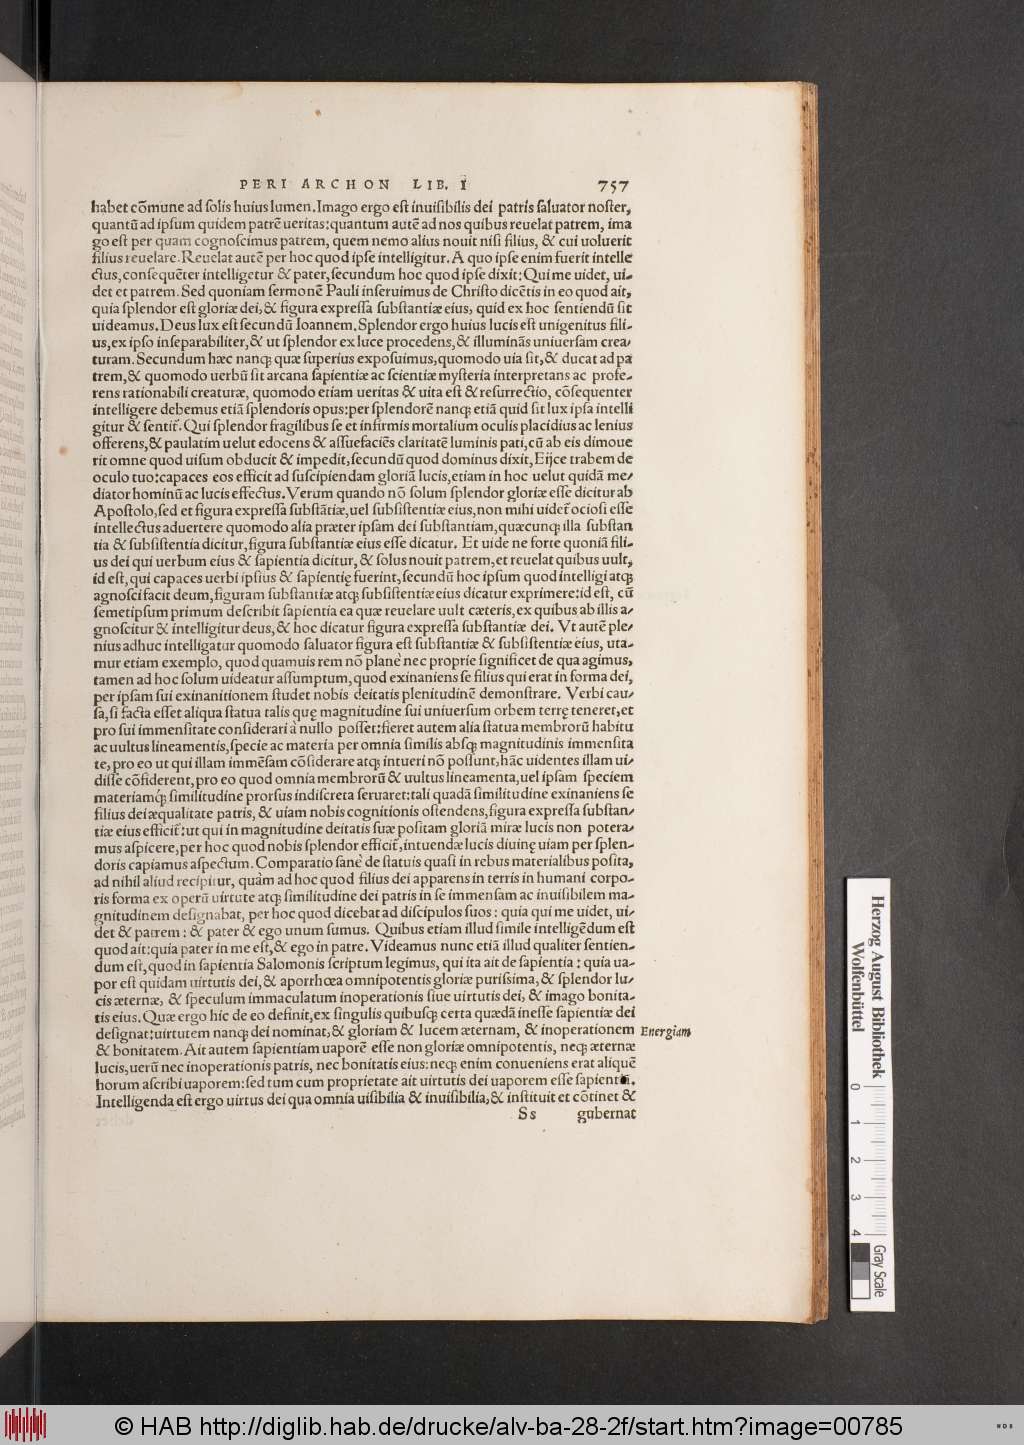 PERI ARCHON LIB. I 757
habet cõmune ad ſolis huius lumen. Imago ergo eſt inuiſibilis dei patris ſaluator noſter,
quantũ ad ipſum quidem patrẽ ueritas: quantum autẽ ad nos quibus reuelat patrem, ima
go eſt per quam cognoſcimus patrem, quem nemo alius nouit niſi filius, & cui uoluerit
filius reuelare. Reuelat autẽ per hoc quod ipſe intelligitur. A quo ipſe enim fuerit intelle
ctus, conſequẽter intelligetur & pater, ſecundum hoc quod ipſe dixit: Qui me uidet, ui-
det et patrem. Sed quoniam ſermonẽ Pauli inſeruimus de Chriſto dicẽtis in eo quod ait,
quia ſplendor eſt gloriæ dei, & figura expreſſa ſubſtantiæ eius, quid ex hoc ſentiendũ ſit
uideamus. Deus lux eſt ſecundũ Ioannem. Splendor ergo huius lucis eſt unigenitus fili-
us, ex ipſo inſeparabiliter, & ut ſplendor ex luce procedens, & illuminãs uniuerſam crea-
turam. Secundum hæc nanqꝫ quæ ſuperius expoſuimus, quomodo uia ſit, & ducat ad pa
trem, & quomodo uerbũ ſit arcana ſapientiæ ac ſcientiæ myſteria interpretans ac profe-
rens rationabili creaturæ, quomodo etiam ueritas & uita eſt & reſurrectio, cõſequenter
intelligere debemus etiã ſplendoris opus: per ſplendorẽ nanqꝫ etiã quid ſit lux ipſa intelli
gitur & ſentit᷑. Qui ſplendor fragilibus ſe et infirmis mortalium oculis placidius ac lenius
offerens, & paulatim uelut edocens & aſſuefaciẽs claritatẽ luminis pati, cũ ab eis dimoue
rit omne quod uiſum obducit & impedit, ſecundũ quod dominus dixit, Eijce trabem de
oculo tuo: capaces eos efficit ad ſuſcipiendam gloriã lucis, etiam in hoc uelut quidã me-
diator hominũ ac lucis effectus. Verum quando nõ ſolum ſplendor gloriæ eſſe dicitur ab
Apoſtolo, ſed et figura expreſſa ſubſtãtiæ, uel ſubſiſtentiæ eius, non mihi uidet᷑ ocioſi eſſe
intellectus aduertere quomodo alia præter ipſam dei ſubſtantiam, quæcunqꝫ illa ſubſtan
tia & ſubſiſtentia dicitur, figura ſubſtantiæ eius eſſe dicatur. Et uide ne forte quoniã fili-
us dei qui uerbum eius & ſapientia dicitur, & ſolus nouit patrem, et reuelat quibus uult,
id eſt, qui capaces uerbi ipſius & ſapientię fuerint, ſecundũ hoc ipſum quod intelligi atqꝫ
agnoſci facit deum, figuram ſubſtantiæ atqꝫ ſubſiſtentiæ eius dicatur exprimere: id eſt, cũ
ſemetipſum primum deſcribit ſapientia ea quæ reuelare uult cæteris, ex quibus ab illis a-
gnoſcitur & intelligitur deus, & hoc dicatur figura expreſſa ſubſtantiæ dei. Vt autẽ ple-
nius adhuc intelligatur quomodo ſaluator figura eſt ſubſtantiæ & ſubſiſtentiæ eius, uta-
mur etiam exemplo, quod quamuis rem nõ planè nec proprie ſignificet de qua agimus,
tamen ad hoc ſolum uideatur aſſumptum, quod exinaniens ſe filius qui erat in forma dei,
per ipſam ſui exinanitionem ſtudet nobis deitatis plenitudinẽ demonſtrare. Verbi cau-
ſa, ſi facta eſſet aliqua ſtatua talis quę magnitudine ſui uniuerſum orbem terrę teneret, et
pro ſui immenſitate conſiderari à nullo poſſet: fieret autem alia ſtatua membrorũ habitu
ac uultus lineamentis, ſpecie ac materia per omnia ſimilis abſqꝫ magnitudinis immenſita
te, pro eo ut qui illam immẽſam cõſiderare atqꝫ intueri nõ poſſunt, hãc uidentes illam ui-
diſſe cõfiderent, pro eo quod omnia membrorũ & uultus lineamenta, uel ipſam ſpeciem
materiamqꝫ́ ſimilitudine prorſus indiſcreta ſeruaret: tali quadã ſimilitudine exinaniens ſe
filius dei æqualitate patris, & uiam nobis cognitionis oſtendens, figura expreſſa ſubſtan-
tiæ eius efficit᷑: ut qui in magnitudine deitatis ſuæ poſitam gloriã miræ lucis non potera-
mus aſpicere, per hoc quod nobis ſplendor efficit᷑, intuendæ lucis diuinę uiam per ſplen-
doris capiamus aſpectum. Comparatio ſanè de ſtatuis quaſi in rebus materialibus poſita,
ad nihil aliud recipitur, quàm ad hoc quod filius dei apparens in terris in humani corpo-
ris forma ex operũ uirtute atqꝫ ſimilitudine dei patris in ſe immenſam ac inuiſibilem ma-
gnitudinem deſignabat, per hoc quod dicebat ad diſcipulos ſuos: quia qui me uidet, ui-
det & patrem: & pater & ego unum ſumus. Quibus etiam illud ſimile intelligẽdum eſt
quod ait: quia pater in me eſt, & ego in patre. Videamus nunc etiã illud qualiter ſentien-
dum eſt, quod in ſapientia Salomonis ſcriptum legimus, qui ita ait de ſapientia: quia ua-
por eſt quidam uirtutis dei, & aporrhœa omnipotentis gloriæ puriſsima, & ſplendor lu-
cis æternæ, & ſpeculum immaculatum inoperationis ſiue uirtutis dei, & imago bonita-
tis eius. Quæ ergo hic de eo definit, ex ſingulis quibuſqꝫ certa quædã ineſſe ſapientiæ dei
deſignat: uirtutem nanqꝫ dei nominat, & gloriam & lucem æternam, & inoperationem Energiam
& bonitatem. Ait autem ſapientiam uaporẽ eſſe non gloriæ omnipotentis, neqꝫ æternæ
lucis, uerũ nec inoperationis patris, nec bonitatis eius: neqꝫ enim conueniens erat aliquẽ
horum aſcribi uaporem: ſed tum cum proprietate ait uirtutis dei uaporem eſſe
Intelligenda eſt ergo uirtus dei qua omnia uiſibilia & inuiſibilia, & inſtituit et cõtinet &
Ss gubernat
Herzog August Bibliothek
Wolfenbüttel
0 1 2 3 4
Gray Scale
© HAB http://diglib.hab.de/drucke/alv-ba-28-2f/start.htm?image=00785